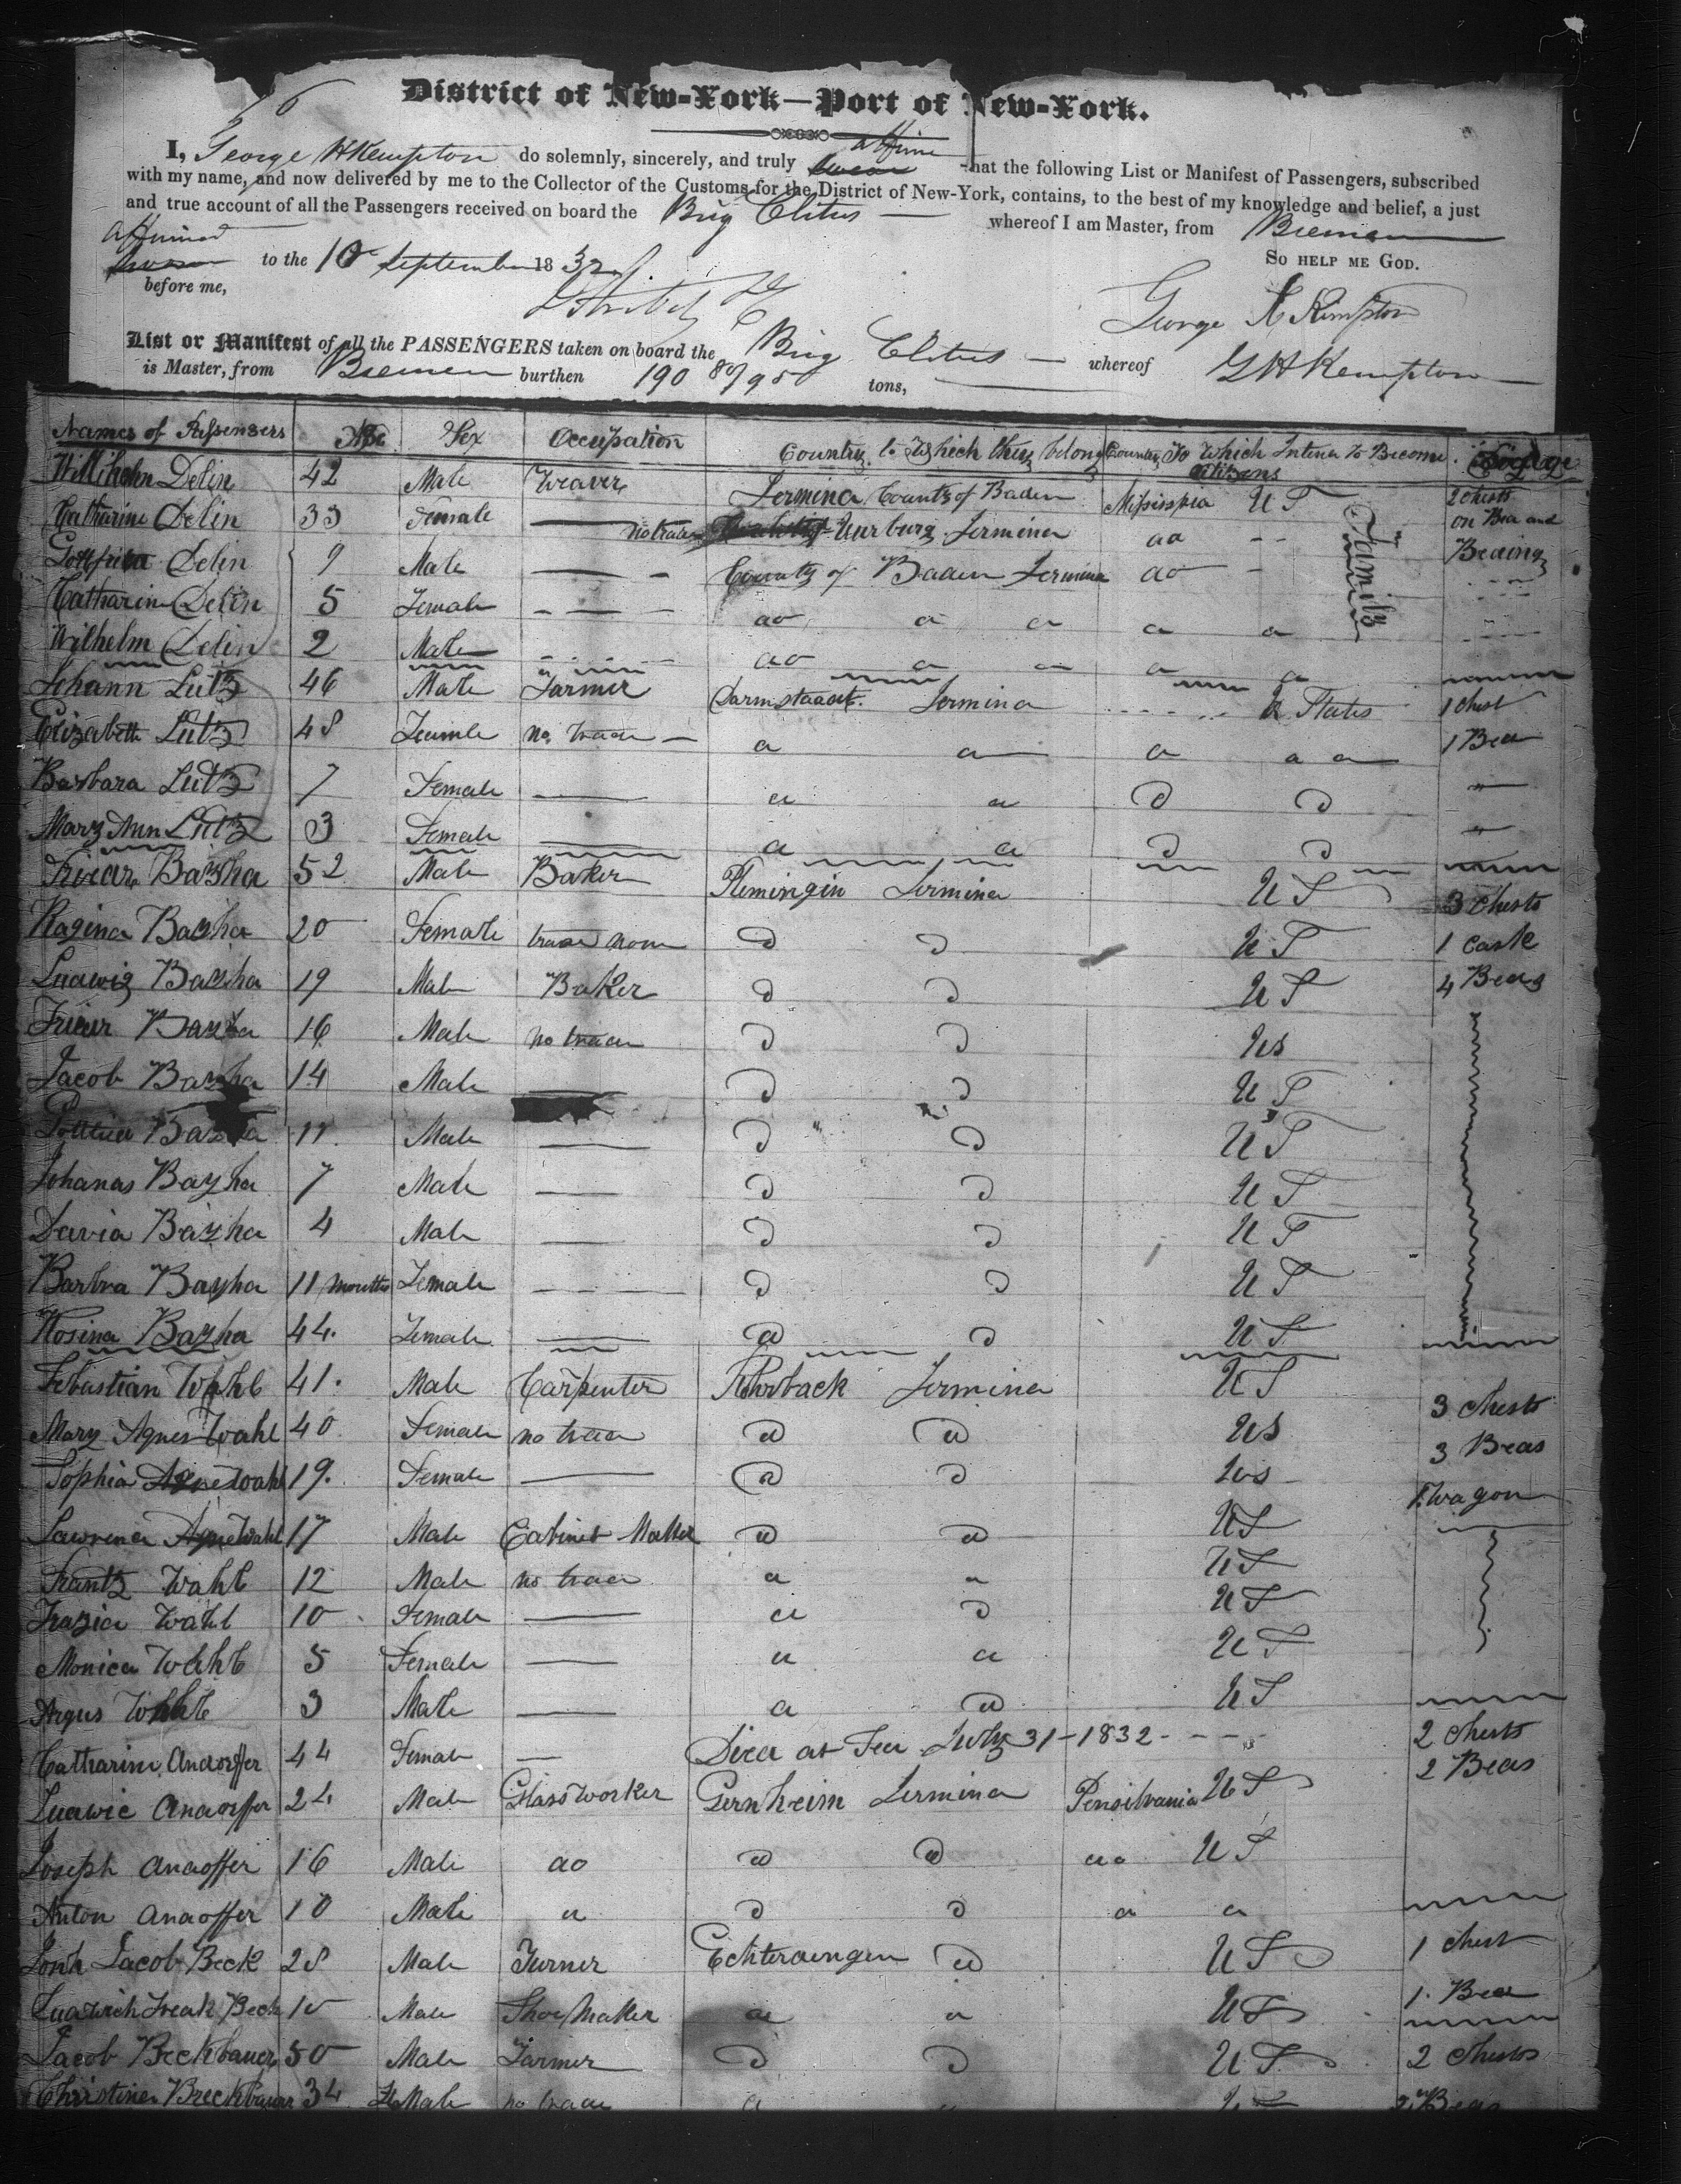 District of New-York—Port of New-York.
I, George H Kempton do solemnly, sincerely, and truly swear affirm that the following List or Manifest of Passengers, subscribed
with my name, and now delivered by me to the Collector of the Customs for the District of New-York, contains, to the best of my knowledge and belief, a just
and true account of all the Passengers received on board the Brig Clitus whereof I am Master, from Bremen
affirmed
sworn to the 10 September 1832 So help me God.
before me,
George H Kempton
List or Manifest of all the PASSENGERS taken on board the Brig Clitus whereof G H Kempton
is Master, from Bremen burthen 190 80/95 tons,
Names of Passengers Age Sex Occupation Country to Which they belong Country To Which Intend To Become Citizens
Delin 42 Male Weaver Jermina County of Baden U S 2 Chests
Catharine Delin 33 Female no trade Jermina do on Bed and
Delin 9 Male County of Baden Jermina do Beding
Catharine Delin 5 Female do
Wilhelm Delin 2 Male do
Family
Johann Lutz 46 Male Farmer Darmstaadt Jermina U States 1 Chest
Elizabeth Lutz 48 Female no trade 1 Bed
Barbara Lutz 7 Female
Mary Ann Lutz 3 Female
Baysha 52 Male Baker Plemingin Jermina U S 3 Chests
Ragina Baysha 20 Female trade none U S 1 Cask
Ludwig Baysha 19 Male Baker U S 4 Beds
Baysha 16 Male no trade US
Jacob Baysha 14 Male U S
Baysha 11 Male U S
Johanas Baysha 7 Male U S
David Baysha 4 Male U S
Barbra Baysha 11 months Female U S
Rosina Baysha 44 Female U S
Sebastian Wahl 41 Male Carpenter Rohrback Jermina U S 3 Chests
Mary Agnes Wahl 40 Female no trade US 3 Beds
Sophia Wahl 19 Female US 1 Wagon
Lawrence Wahl 17 Male Cabinet Maker U S
Frantz Wahl 12 Male no trade U S
Wahl 10 Female U S
Monica Wahl 5 Female U S
Argus Wahl 3 Male U S
Catharine Andoffer 44 Female Died at Sea July 31-1832 2 Chests
Ludwic Andoffer 24 Male Glass Worker Gernheim Jermina Pensilvania U S 2 Beds
Joseph Andoffer 16 Male do do U S
Anton Andoffer 10 Male
Jacob Beck 28 Male Turner Echterdengen U S 1 Chest
Beck Male Shoe Maker U S 1 Bed
Jacob Beckbauer 50 Male Farmer U S 2 Chests
Christina 34 FeMale no trade 2 Beds